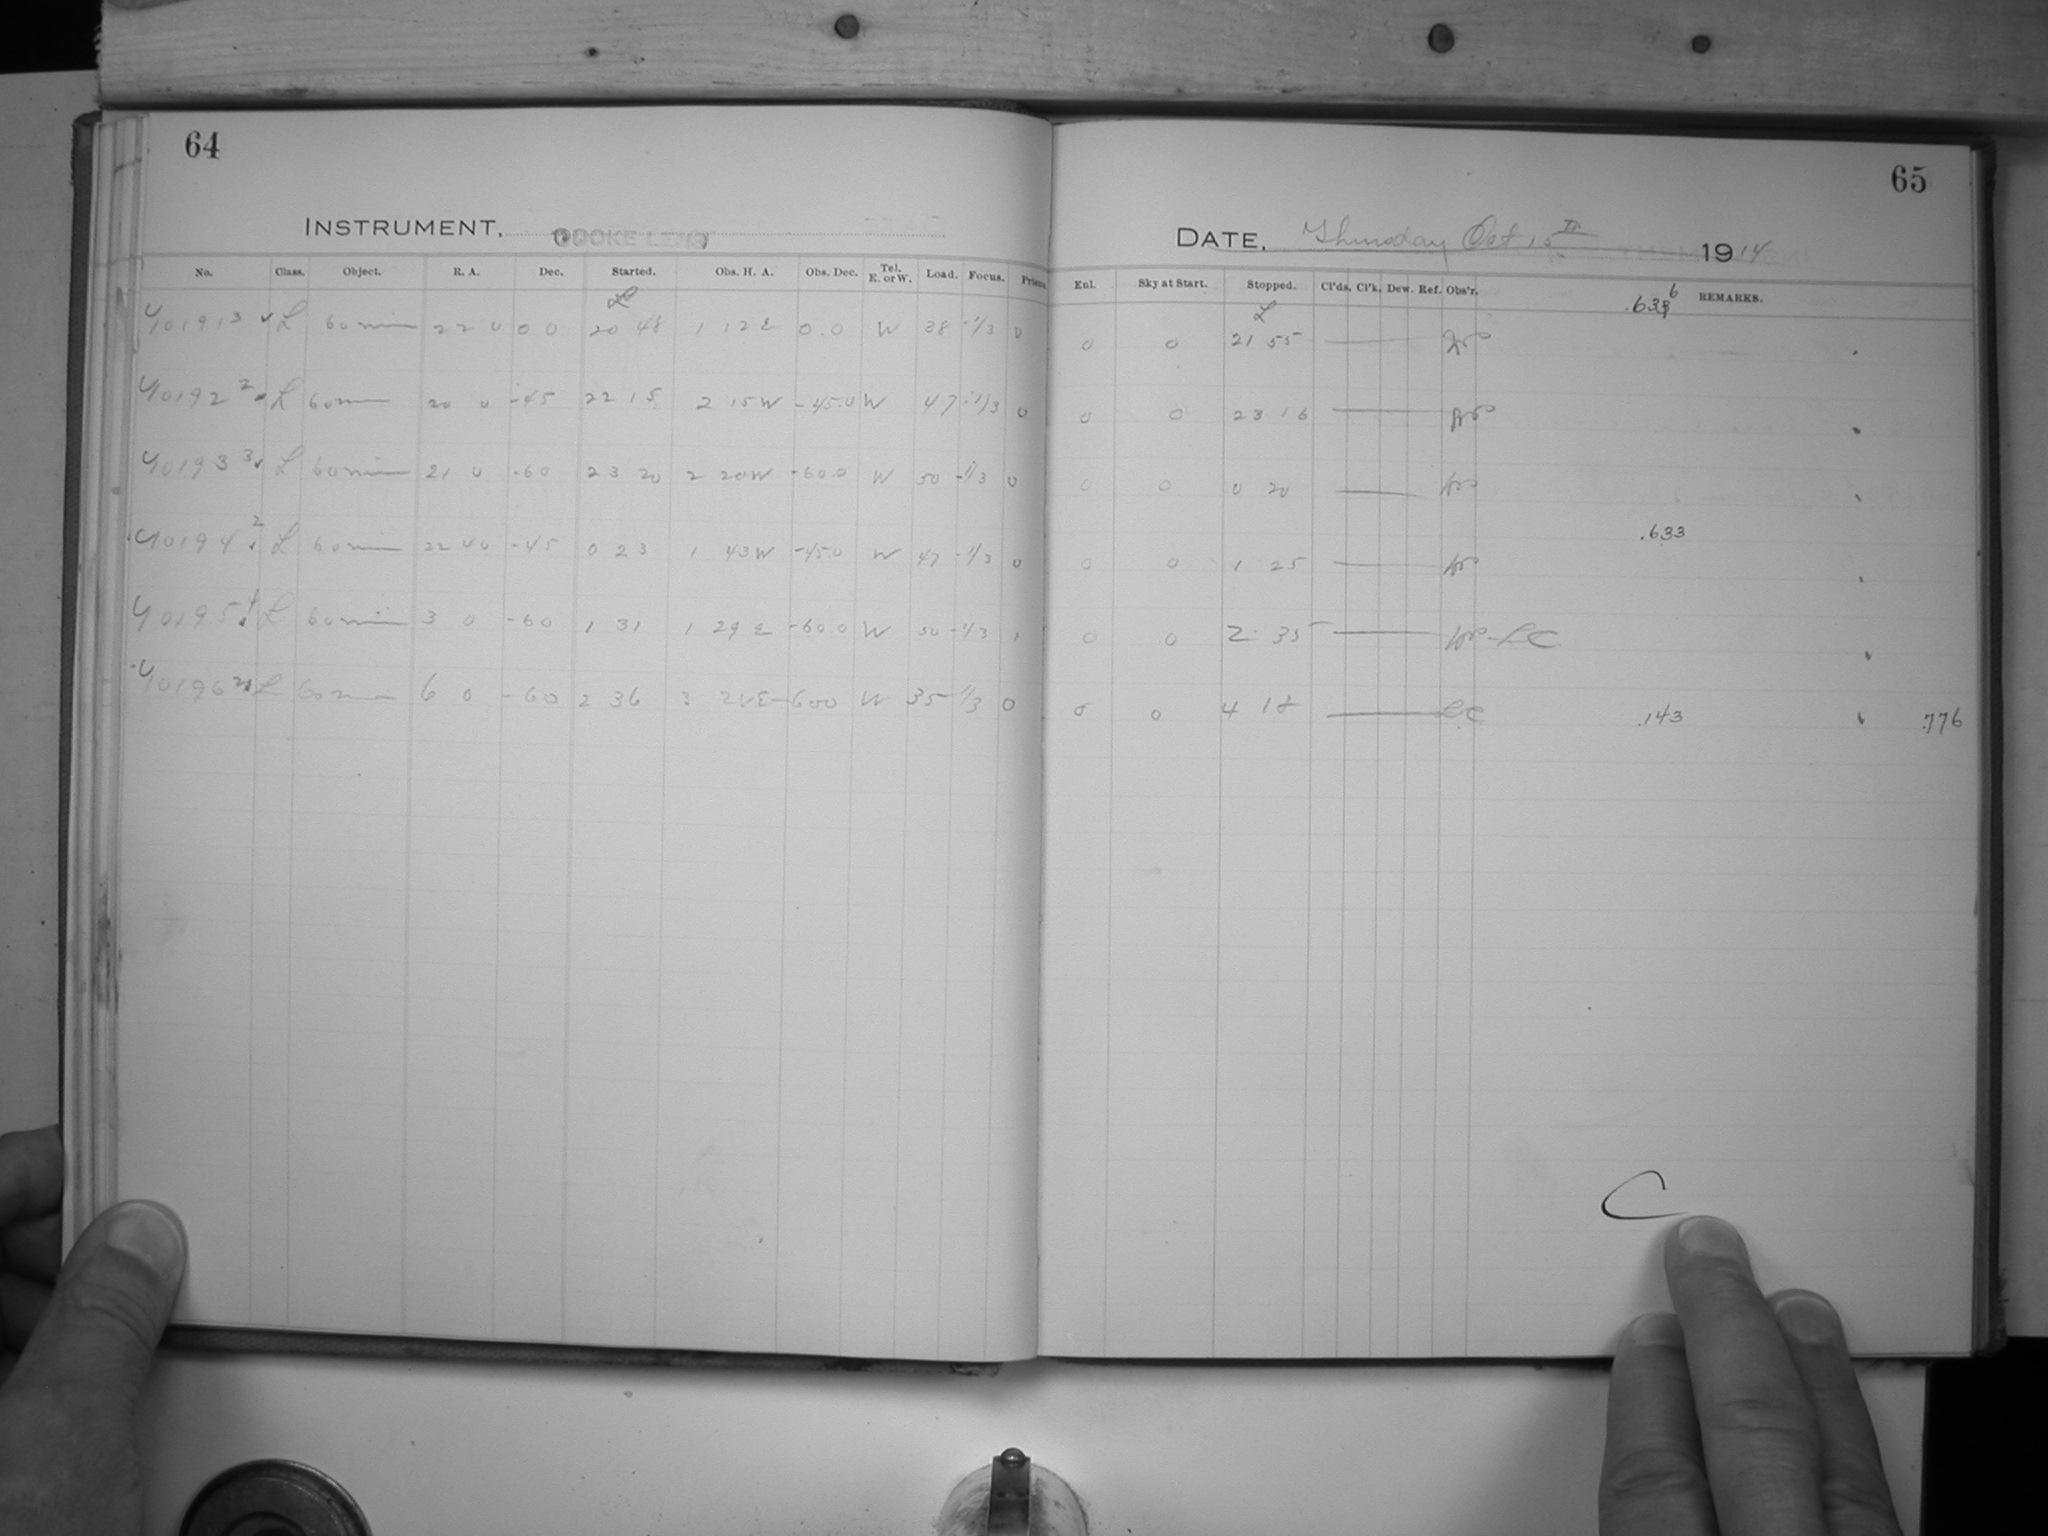 64
INSTRUMENT. COOKE LENS
No. Class. Object. R. A. Dec. Started. Obs. H. A. Obs. Dec. Tel. E. or W. Load. Focus. Prism
40191 3 L 60 min 22 0 0 0 20 48 1 12 E 0.0 W 38 -1/3 0
40192 2 L 60 min 20 0 -45 22 15 2 15 W -45.0 W 47 -1/3 0
40193 3 L 60 min 21 0 -60 23 20 2 20 W -60.0 W 50 -1/3 0
40194 2 L 60 min 22 40 -45 0 23 1 43 W -45.0 W 47 -1/3 0
40195 L 60 min 3 0 -60 1 31 1 29 E -60 0 W 50 -1/3 1
40196 L 60 min 6 0 -60 2 36 3 E -600 W 35 -1/3 0
65
DATE. Thursday Oct 15th 1914
Enl. Sky at Start. Stopped. Cl'ds. Cl'k. Dew. Ref. Obs'r. REMARKS.
L .633 6
0 0 21 55
0 0 23 16
0 0 0 20
.633
0 0 1 25
0 0 2 35 LC
0 0 4 18 LC .143 .776
C